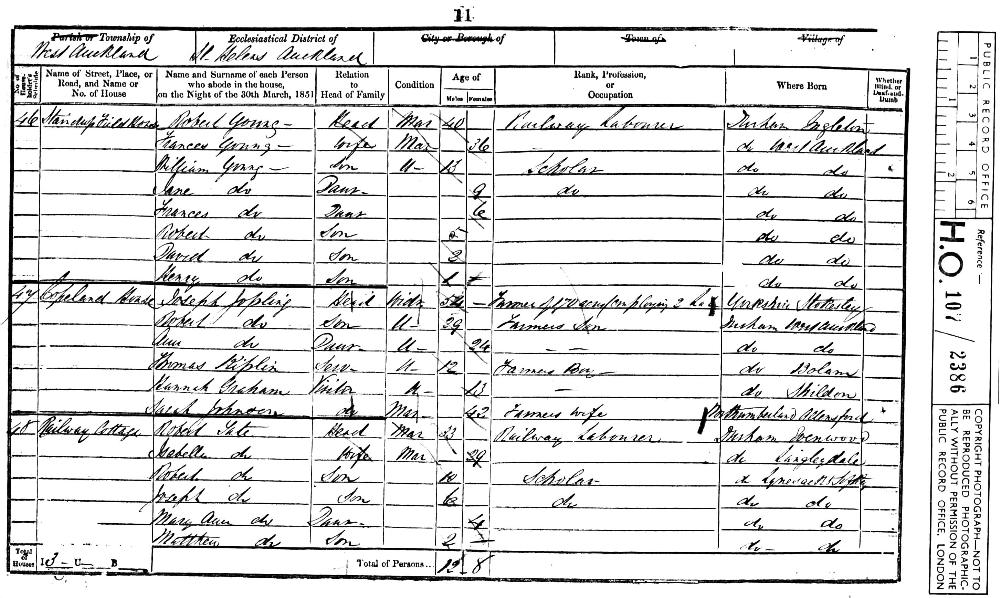 11
Parish or Township of
West Auckland
Ecclesiastical District of
St Helens Auckland
City or Borough of
Town of
Village of
No. of House-holder's Schedule
Name of Street, Place, or Road, and Name or No. of House
Name and Surname of each Person who abode in the house, on the Night of the 30th March, 1851
Relation to Head of Family
Condition
Age of
Males Females
Rank, Profession, or Occupation
Where Born
Whether Blind, or Deaf-and-Dumb
46 Robert Young Head Mar 40 Railway Labourer Durham Ingleton
Frances Young Wife Mar 36 do West Auckland
William Young Son U 13 Scholar do do
Jane do Daur 9 do do do
Frances do Daur 6 do do
Robert do Son do do
David do Son 2 do do
Henry do Son 1 do do
47 Copeland House Joseph Jopling Head Widr Farmer of 170 acres employing 2 Lab Yorkshire
Robert do Son U 29 Farmers Son Durham West Auckland
Ann do Daur U 24 do do
Thomas Kiplin Serv U 12 Farmers Boy do Bolam
Hannah Graham Visitor U 13 do Shildon
Sarah Johnson do Mar 42 Farmers Wife Northumberland
48 Railway Cottage Robert Tate Head Mar 33 Railway Labourer Durham Evenwood
Isabella do Wife Mar 29 do Langleydale
Robert do Son 10 Scholar do
Joseph do Son 6 do do do
Mary Ann do Daur 4 do do
Matthew do Son 2 do do
Total of Houses I 3 U B
Total of Persons 12 8
PUBLIC RECORD OFFICE
1 2 3 4 5 6
1 2
Reference:-
H.O. 107 / 2386
COPYRIGHT PHOTOGRAPH-NOT TO BE REPRODUCED PHOTOGRAPHIC-ALLY WITHOUT PERMISSION OF THE PUBLIC RECORD OFFICE, LONDON